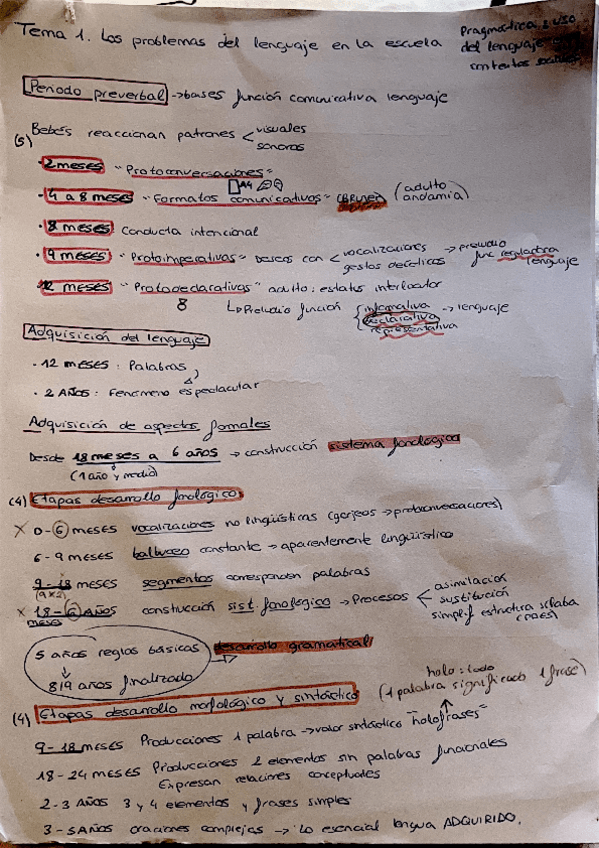 Tema 1. Los problemas del lenguaje en la escuela
Pragmática: uso
del lenguaje en
contextos sociales
Periodo preverbal → bases función comunicativa lenguaje
(5) Bebés reaccionan patrones < visuales
sonoros
· 2 meses "Protoconversaciones"
· 4 a 8 meses "Formatos comunicativos" (Bruner) (adulto
andamia)
· 8 meses Conducta intencional
· 9 meses "Protoimperativas" deseos con < vocalizaciones → preludio
gestos deícticos func reguladora
lenguaje
12 meses "Protodeclarativas" adulto: estatus interlocutor
8 ↳ Preludio función { informativa
declarativa → lenguaje
representativa
Adquisición del lenguaje
· 12 meses: Palabras
· 2 Años: Fenómeno espectacular
Adquisición de aspectos formales
Desde 18 meses a 6 años → construcción sistema fonológico
(1 año y medio)
(4) Etapas desarrollo fonológico
X 0-6 meses vocalizaciones no lingüísticas (gorjeos → protoconversaciones)
6-9 meses balbuceo constante → aparentemente lingüístico
9-18 meses segmentos corresponden palabras
(9x2)
X 18-6 Años construcción sist. fonológico → Procesos < asimilación
meses sustitución
simplif estructura sílaba
5 años reglas básicas → desarrollo gramatical
↓
8/9 años finalizado
holo: todo
(1 palabra significado 1 frase)
(4) Etapas desarrollo morfológico y sintáctico
9-18 meses Producciones 1 palabra → valor sintáctico "holofrases"
18-24 meses Producciones 2 elementos sin palabras funcionales
Expresan relaciones conceptuales
2-3 Años 3 y 4 elementos y frases simples
3-5 Años oraciones complejas → lo esencial lengua ADQUIRIDO.